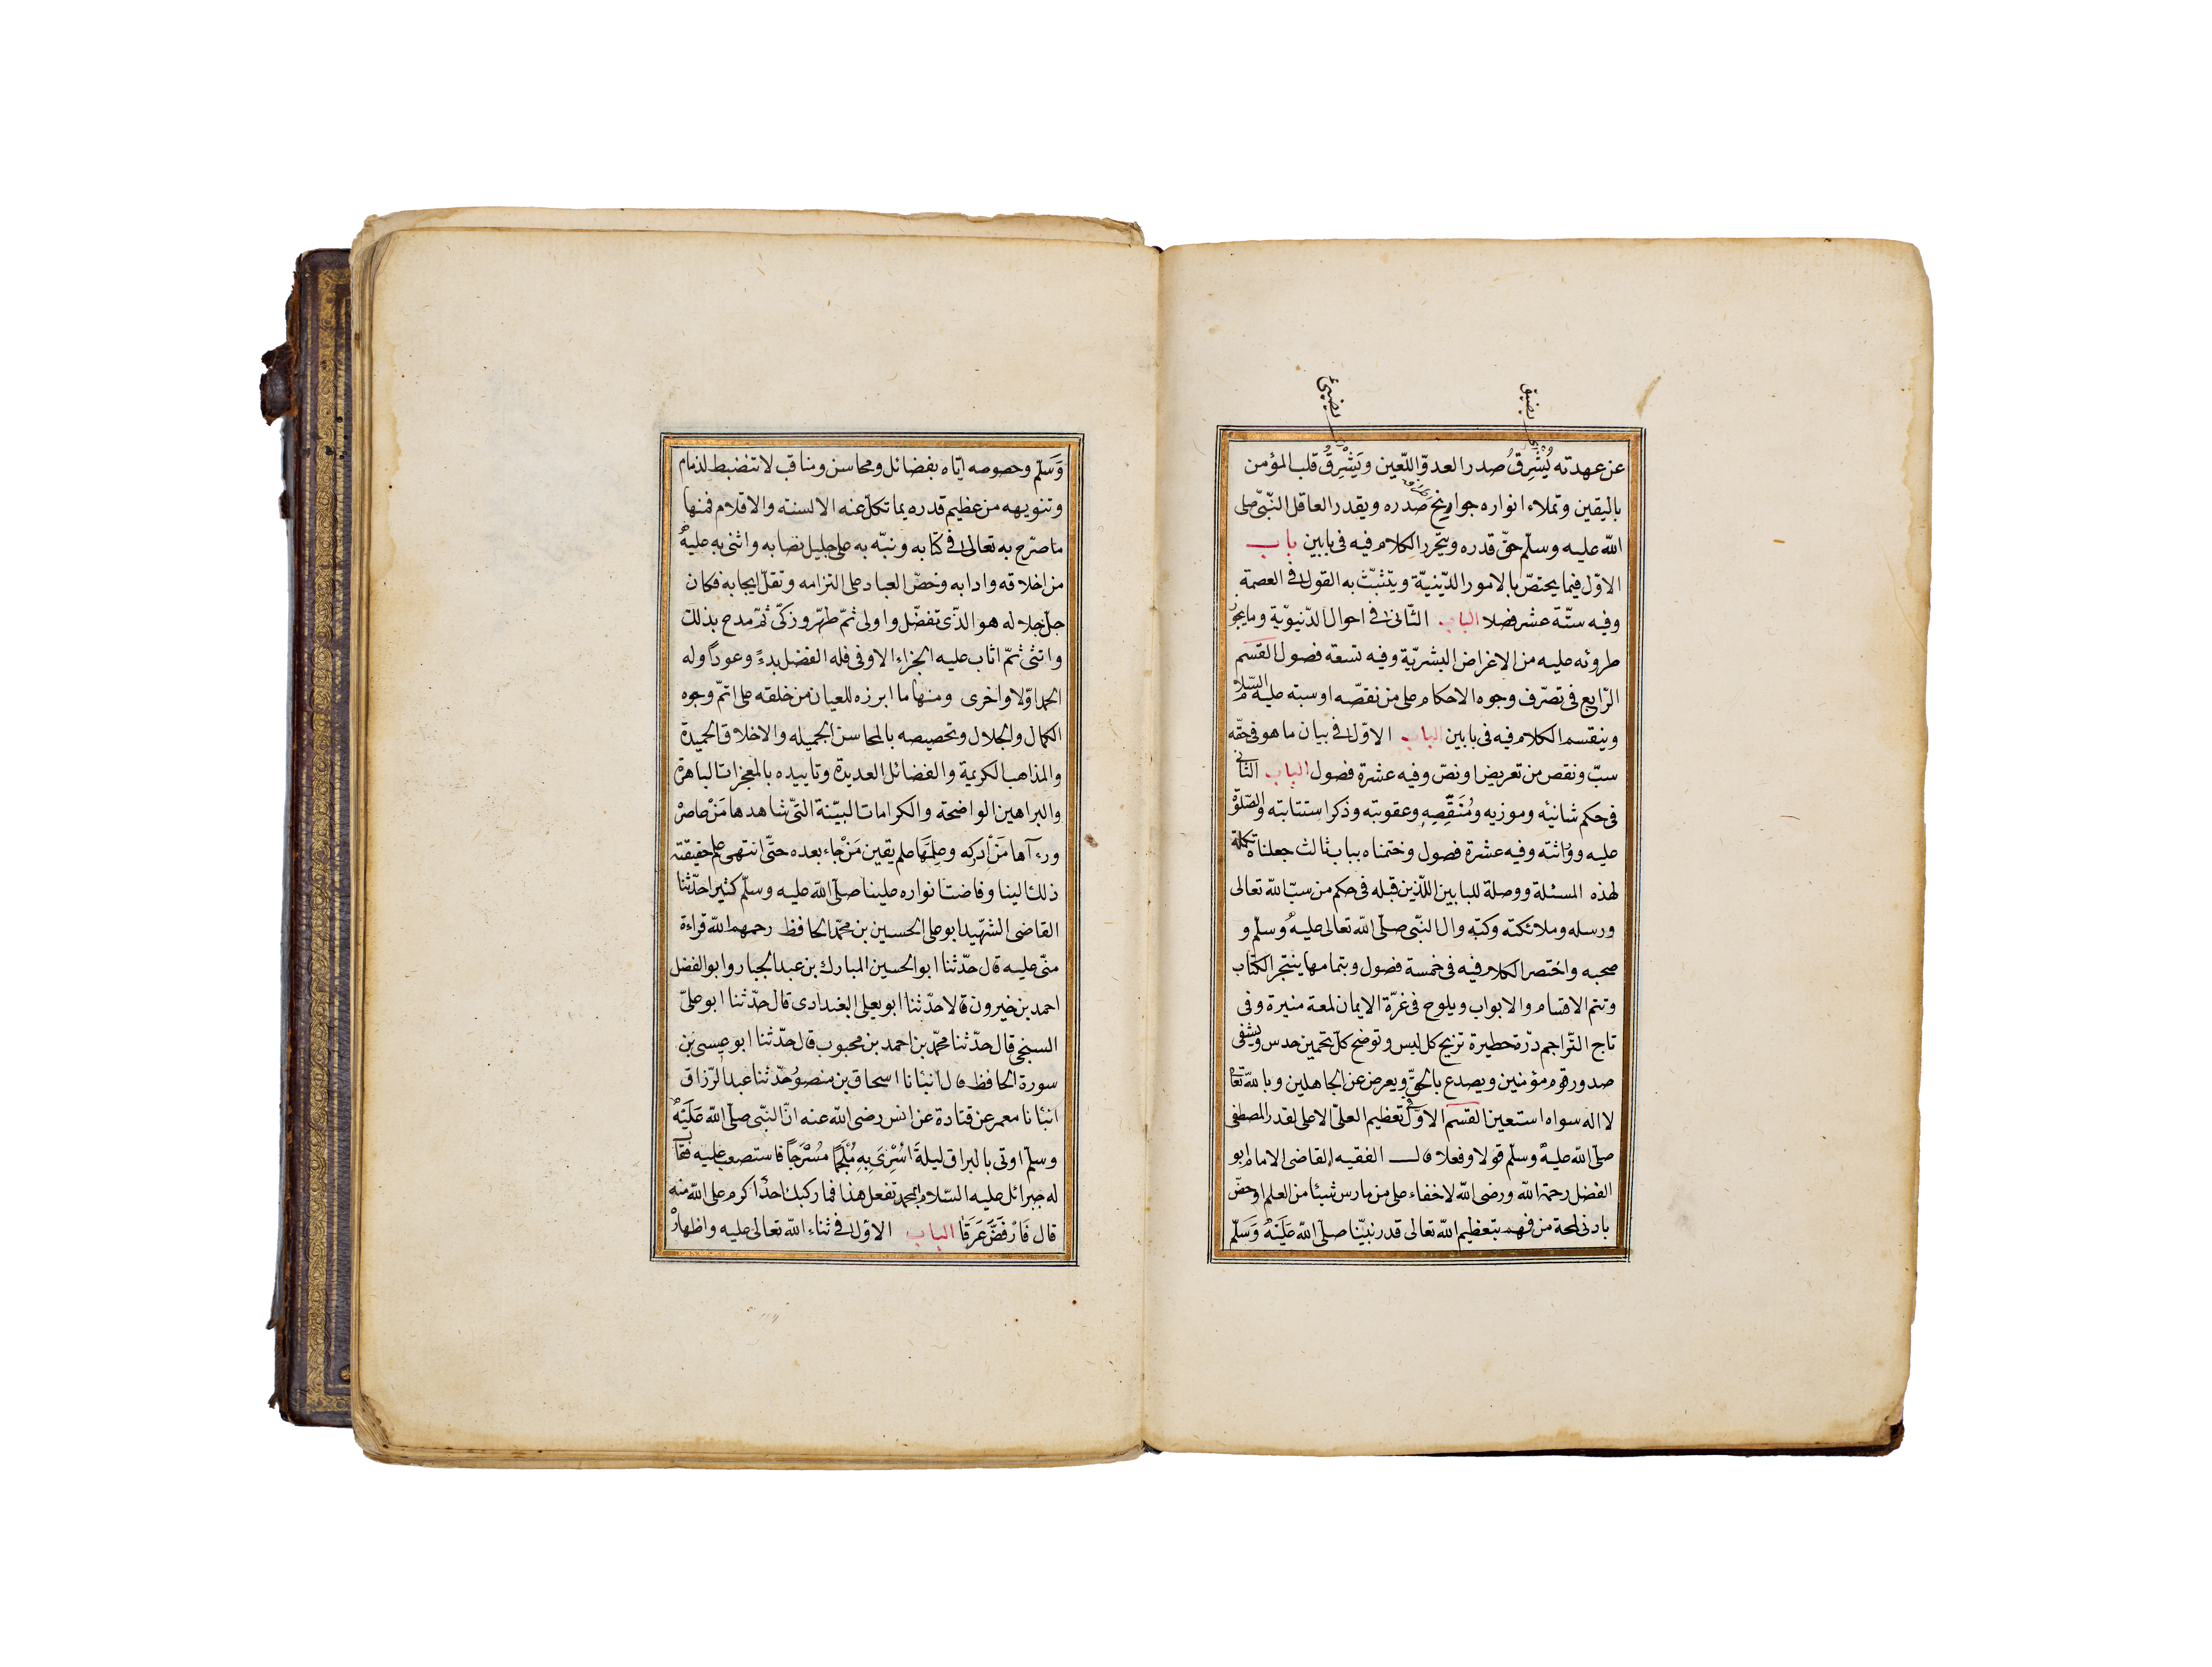 يضيق
يضيئ
عن عهدته يُشرِقُ صدر العدوّ اللّعين ويَشْرِقُ قلب المؤمن
باليقين وتملاء انواره جوانح صدره ويقدر العاقل النّبىّ صلى
الله عليه وسلّم حقّ قدره ويتحرر الكلام فيه فى بابين باب
الاوّل فيما يختصّ بالامور الدّينيّة ويتثبّت به القول فى العصمة
وفيه ستّة عشر فصلا الباب الثّانى فى احوال الدّنيويّة وما يجوز
طروئه عليه من الاغراض البشريّة وفيه تسعة فصول القسم
الرّابع فى تصرّف وجوه الاحكام على من نقصّه او سبّه عليه السّلام
وينقسم الكلام فيه فى بابين الباب الاوّل فى بيان ما هو فى حقّه
سبّ ونقص من تعريض او نصّ وفيه عشرة فصول الباب الثانى
فى حكم شانيئه وموزيه ومُنَقِّصِهِ وعقوبته وذكر استتابته والصّلوة
عليه وورٰاثته وفيه عشرة فصول وختمناه بباب ثالث جعلناه تكملة
لهذه المسئلة ووصلة للبابين اللّذين قبله فى حكم من سبّ الله تعالى
ورسله وملائكته وكتبه وال النّبى صلّى الله تعالى عليه وسلّم و
صحبه واختصر الكلام فيه فى خمسة فصول وبتمامها ينتجز الكتاب
وتتم الاقسام والابواب ويلوح فى غرّة الايمان لمعة منيرة وفى
تاج التّراجم درّة خطيرة تزيح كل لبس وتوضح كلّ تخمين حدس ويشفى
صدور قوم مؤمنين ويصدع بالحقّ ويعرض عن الجاهلين وبالله تعالى
لا اله سواه استعين القسم الاوّل فى تعظيم العلىّ الاعلى لقدر المصطفى
صلّى الله عليه وسلّم قولا وفعلا قال الفقيه القاضى الامام ابو
الفضل رحمة الله ورضى الله لا خفاء على من مارس شيئا من العلم او خصّ
بادنى لمحة من فهم بتعظيم الله تعالى قدر نبيّنا صلّى الله عَلَيْهِ وَسَلّم
وَسَلّم وخصوصه ايّاه بفضائل ومحاسن ومناقب لا تنضبط لذمام
وتنويهه من عظيم قدره بما تكلّ عنه الالسنة والاقلام فمنها
ما صرّح به تعالى فى كتابه ونبّه به على جليل نصابه واثنى به عليه
من اخلاقه وادابه وخضّ العباد على التزامه وتقلّ ايجابه فكان
جلّ جلاله هو الّذى تفضّل واولى ثمّ طهّر وزكّى ثمّ مدح بذلك
واثنى ثمّ اثاب عليه الجزاء الاوفى فله الفضل بدءً وعوداً وله
الحمد اوّلا واخرى ومنها ما ابرزه للعيان من خلقه على اتمّ وجوه
الكمال والجلال وتخصيصه بالمحاسن الجميله والاخلاق الحميدة
والمذاهب الكريمة والفضائل العديدة وتاييده بالمعجزات الباهرة
والبراهين الواضحة والكرامات البيّنة الّتى شاهدها مَنْ عاصرْ
ورءآها مَنْ أدركه وعلِمَها علم يقين مَنْ جاء بعده حتّى انتهى علم حقيقته
ذلك الينا وفاضت انواره علينا صلّى الله عليه وسلّم كثيرا حدّثنا
القاضى الشّهيد ابو على الحسين بن محمّد الحافظ رحمهم الله قراءة
منّى عليه قال حدّثنا ابو الحسين المبارك بن عبد الجبار وابو الفضل
احمد بن خيرون قالا حدّثنا ابو يعلى البغدادى قال حدّثنا ابو علىّ
السنجى قال حدّثنا محمّد بن احمد بن محبوب قال حدّثنا ابو عيسى بن
سورة الحافظ قال انبانا اسحاق بن منصور حدّثنا عبد الرّزاق
انبانا معمر عن قتادة عن انس رضى الله عنه انّ النّبى صلّى الله عَلَيْهِ
وسلّم اوتى بالبراق ليلةَ اُسْرِىَ بِهِ مُلْجَمًا مُسْرَجًا فاستصعب عليه فقال
له جبرائل عليه السّلام ابمحمد تفعل هذا فما ركبك احدٌ اكرم على الله منه
قال فَارْفَضَّ عَرَقًا الباب الاوّل فى ثناء الله تعالى عليه واظهار